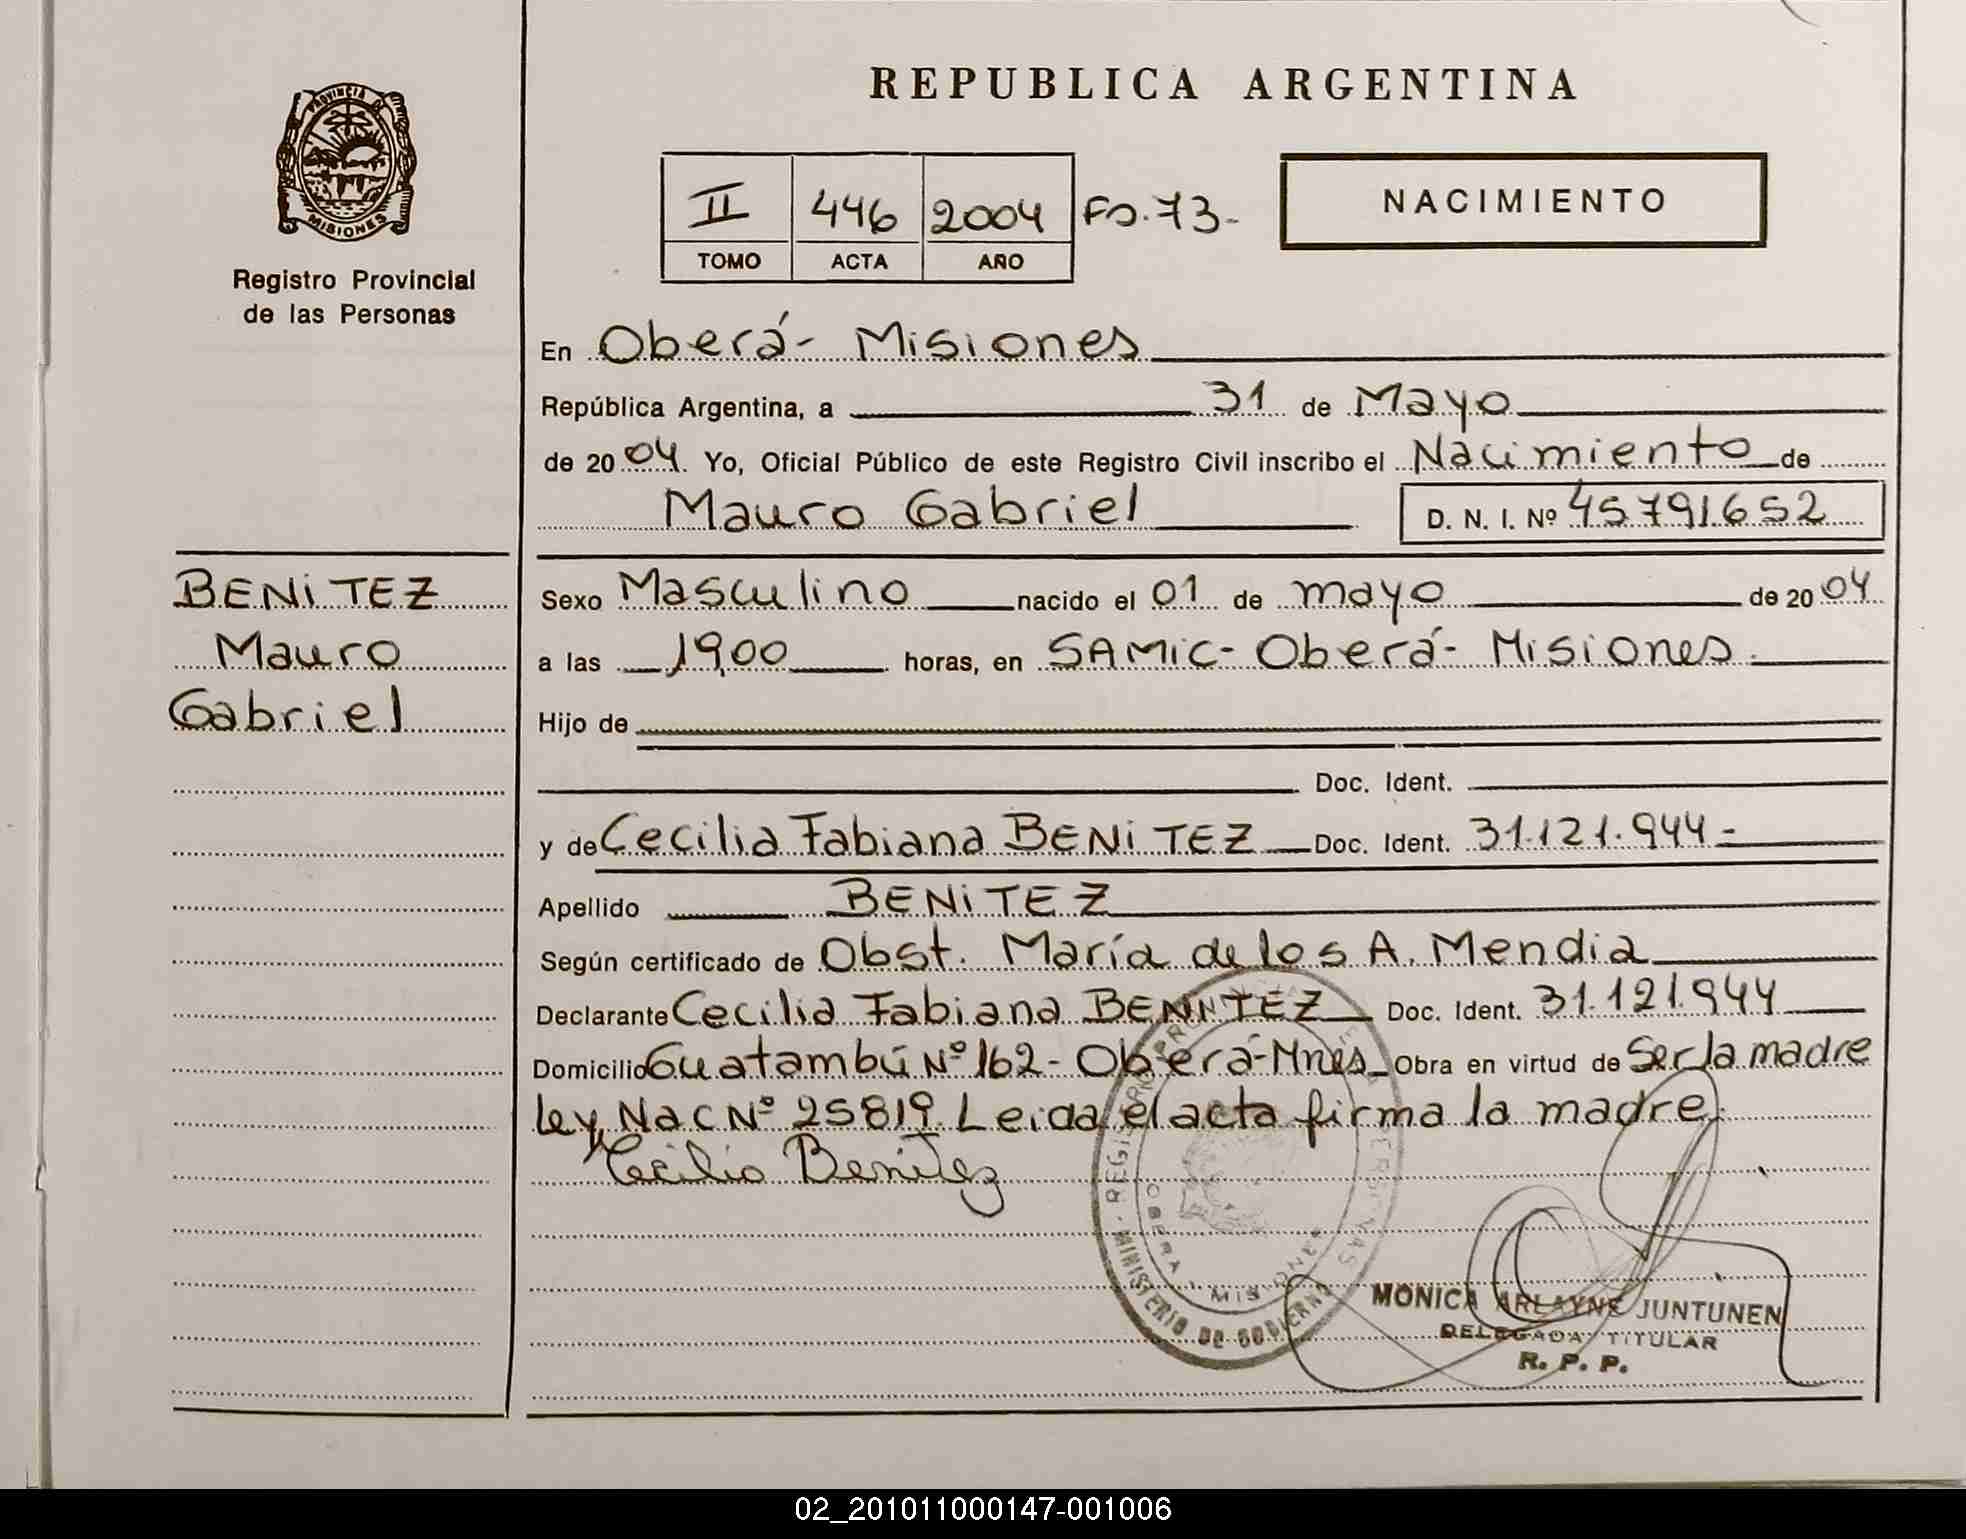 REPUBLICA ARGENTINA
PROVINCIA DE
MISIONES
Registro Provincial
de las Personas
II 446 2004 Fo. 73-
TOMO ACTA AÑO
NACIMIENTO
En Oberá- Misiones
República Argentina, a 31 de Mayo
de 2004. Yo, Oficial Público de este Registro Civil inscribo el Nacimiento de
Mauro Gabriel D. N. I. Nº 45791652
BENiTEZ
Mauro
Gabriel
Sexo Masculino nacido el 01 de mayo de 2004
a las 19,00 horas, en SAMiC- Oberá- Misiones.
Hijo de
Doc. Ident.
y de Cecilia Fabiana BENiTEZ Doc. Ident. 31.121.944-
Apellido BENiTEZ
Según certificado de Obst. María de los A. Mendia
Declarante Cecilia Fabiana BENITEZ Doc. Ident. 31.121.944
Domicilio Guatambú Nº 162- Oberá-Mnes Obra en virtud de Ser la madre
Ley Nac Nº 25819. Leida el acta firma la madre.
Cecilia Benitez
MINISTERIO DE GOBIERNO
OBERA MISIONES
MONICA ARLAYNE JUNTUNEN
DELEGADA TITULAR
R. P. P.
02_201011000147-001006